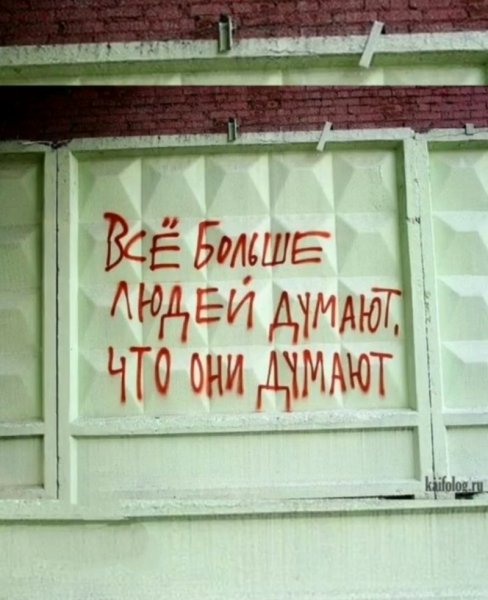 ВСЁ БОЛЬШЕ
ЛЮДЕЙ ДУМАЮТ,
ЧТО ОНИ ДУМАЮТ
kaifolog.ru